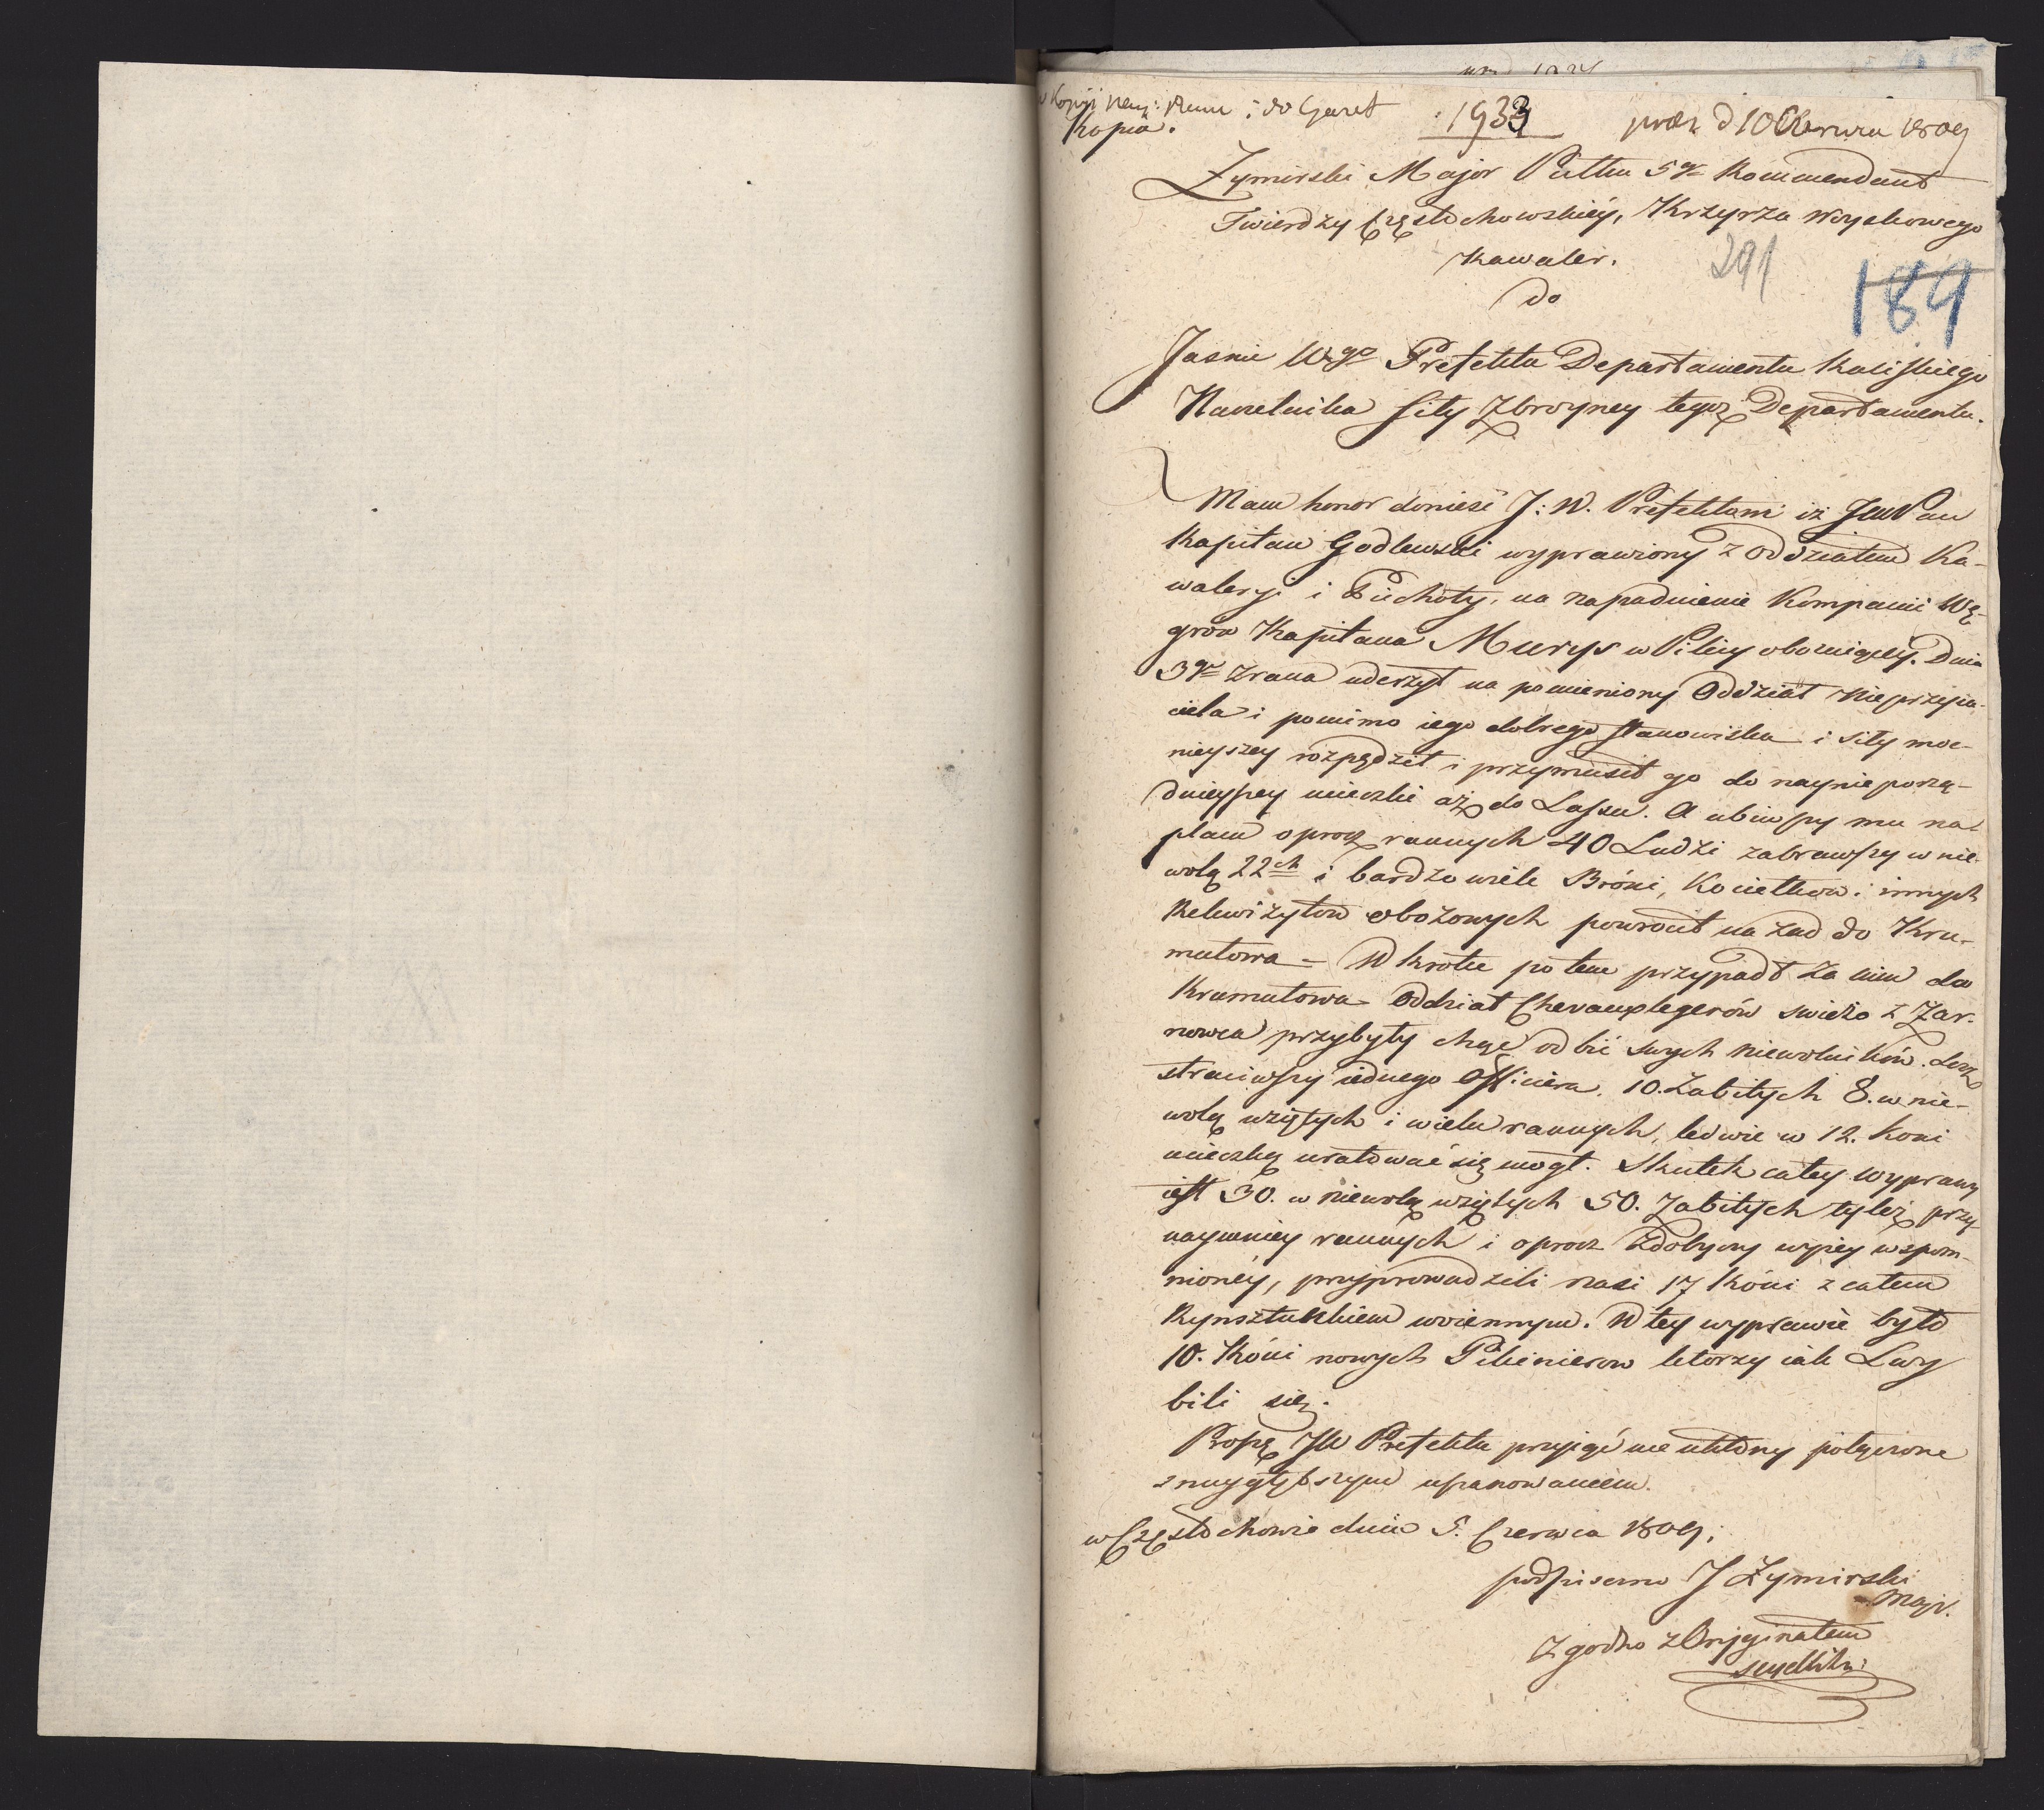 Kopia.
do Gazet
1933
prez d 10 Czerwca 1809
Zymirski Major Pułku 5go Kommendant
Twierdzy Częstochowskiéy, Krzyrza Woyskowego
Kawaler.
291
189
do
Jasnie Wgo Prefekta Departamentu Kaliskiego
Naczelnika Siły Zbroyney tegoż Departamentu.
Mam honor donieść J: W. Prefektowi iż Jmć Pan
Kapitan Godlewski wyprawiony z Oddziałem Ka-
waleryi i Piechoty, na napadnienie Kompanii Wę-
grow Kapitana Murys w Pilicy obozuiącéy. Dnia
3go zrana uderzył na pomieniony Oddział Nieprzyia-
ciela i pomimo iego dobrego stanowiska i siły moc-
nieyszey rozpędził i przymusił go do naynieporzą-
dnieyszey ucieczki aż do Lassu. A ubiwszy mu na
placu oprocz rannych 40 Ludzi zabrawszy w nie-
wolą 22ch i bardzo wiele Bróni, Kociełkow i innych
Rekwizytow obozowych powrocił nazad do Kro-
mołowa – W krotce potem przypadł za nim do
Kromołowa Oddział Chevauxlegerów swieżo z Żar-
nowca przybyły chcąc odbić swych niewolników. Lecz
straciwszy iednego Officiera, 10. Zabitych 8. w nie-
wolą wziętych i wielu rannych, ledwie w 12. Koni
ucieczką uratować się mogł. Skutek całey wyprawy
iest 30. w niewolą wziętych 50. Zabitych tyleż przy
naymniey rannych i oprocz zdobyczy wyżey wspom-
nionéy, przyprowadzili nasi 17 Kóni z całem
Rynsztunkiem woiennym. W tey wyprawie było
10. Kóni nowych Pikinierow ktorzy iak Lwy
bili się.
Proszę JW Prefekta przyiąć me ukłony połączone
z naygłębszym uszanowaniem.
w Częstochowie dnia 5. Czerwca 1809.
podpisano J Zymirski
Major.
Zgodno z Oryginałem